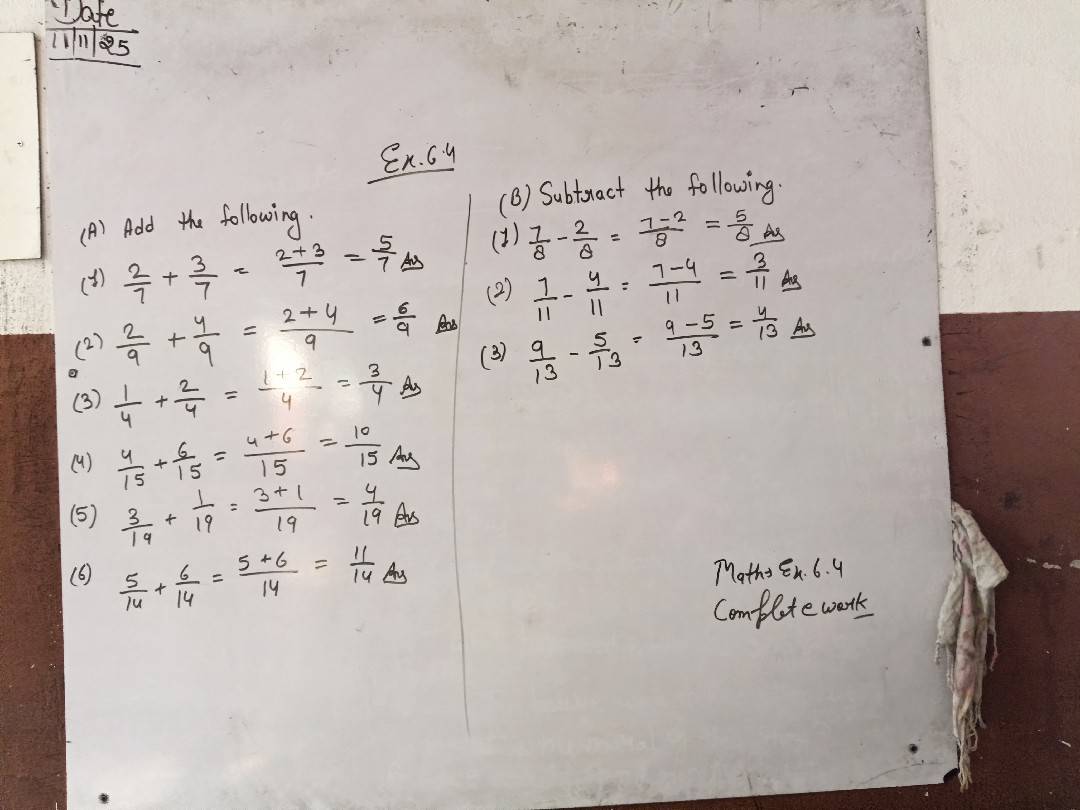 Date
11/11/25
Ex. 6.4
(A) Add the following.
(1) 2/7 + 3/7 = 2+3/7 = 5/7 Ans
(2) 2/9 + 4/9 = 2+4/9 = 6/9 Ans
(3) 1/4 + 2/4 = 1+2/4 = 3/4 Ans
(4) 4/15 + 6/15 = 4+6/15 = 10/15 Ans
(5) 3/19 + 1/19 = 3+1/19 = 4/19 Ans
(6) 5/14 + 6/14 = 5+6/14 = 11/14 Ans
(B) Subtract the following.
(1) 7/8 - 2/8 = 7-2/8 = 5/8 Ans
(2) 7/11 - 4/11 = 7-4/11 = 3/11 Ans
(3) 9/13 - 5/13 = 9-5/13 = 4/13 Ans
Maths Ex. 6.4
Complete work